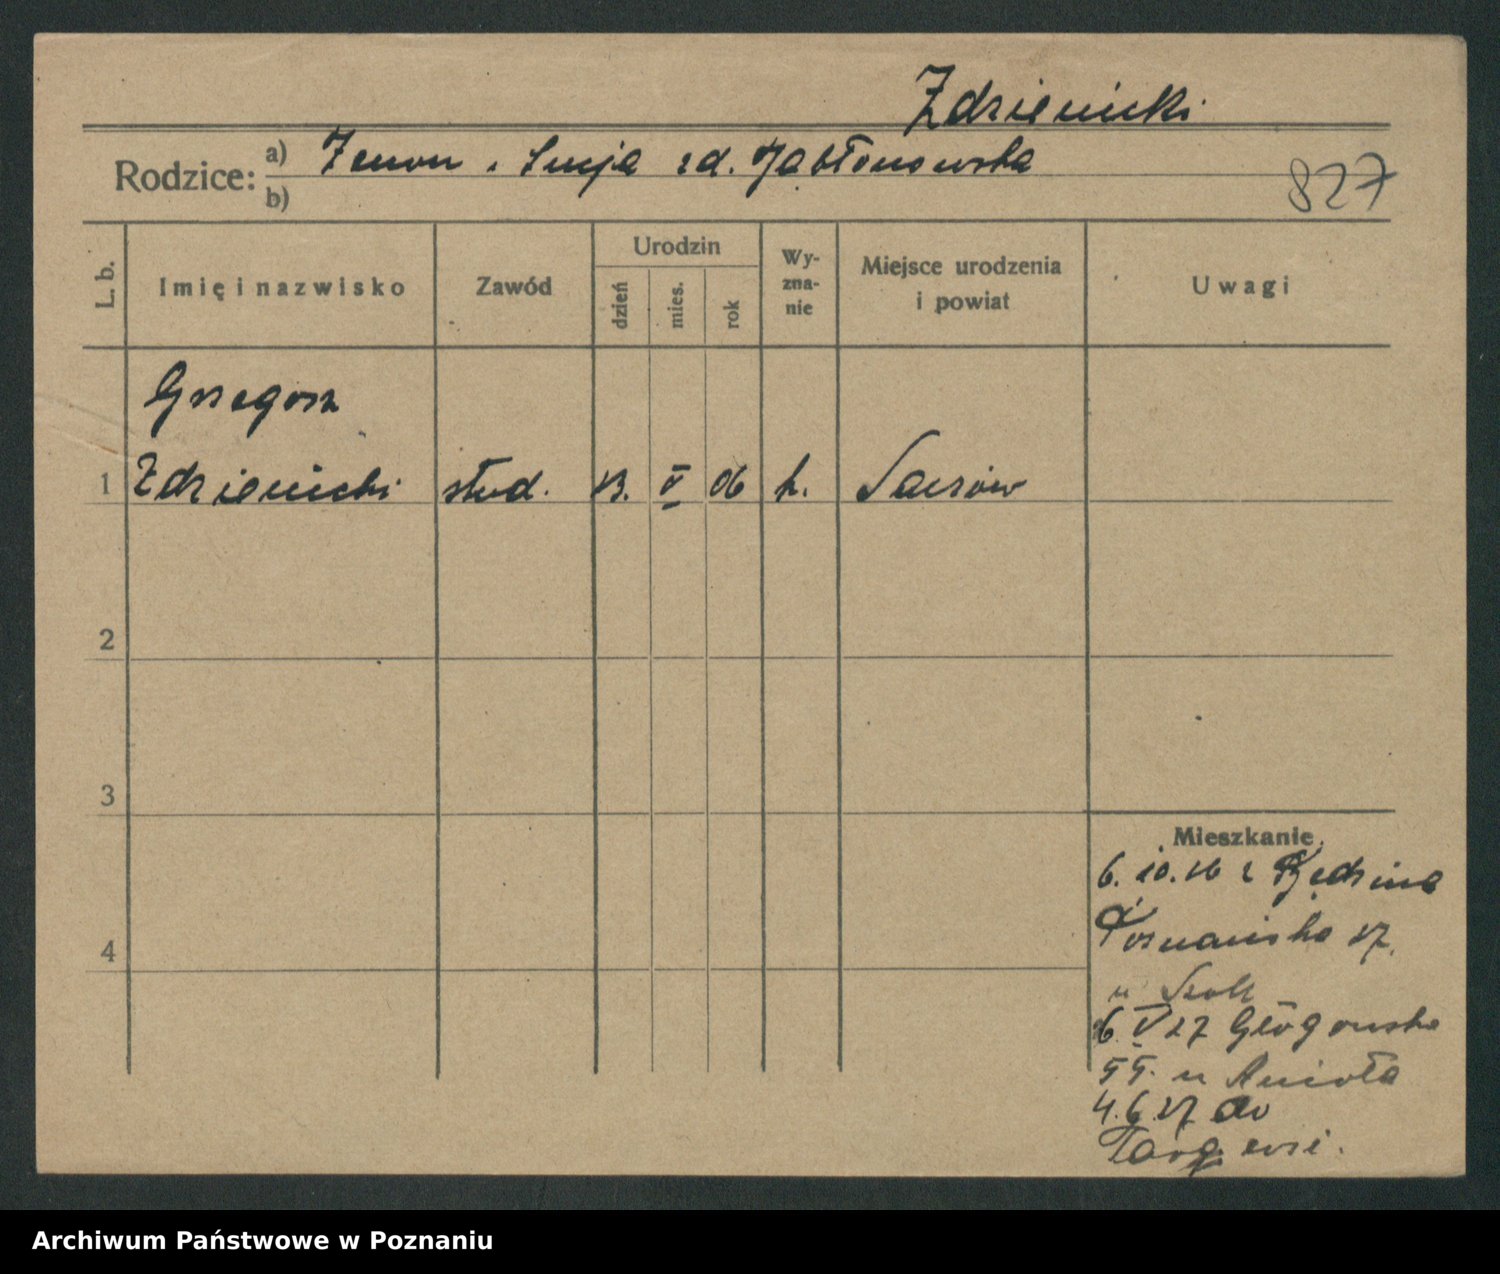 Zdzienicki
Rodzice: a) Zenon i Łucja zd. Jabłonowska
b)
827
L. b. Imię i nazwisko Zawód Urodzin dzień mies. rok Wy-zna-nie Miejsce urodzenia i powiat Uwagi
Grzegorz
1 Zdzienicki stud. 13. V 06 k. Saczów
2
3
Mieszkanie.
6. 10. 26 z Będzina
Poznańska 17.
4
u Szolc
6. V 27 Głogowska
55. u Anioła
4.6.27 do
Targ
Archiwum Państwowe w Poznaniu